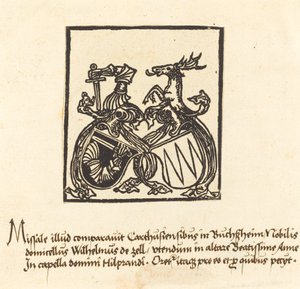 Missale illud comparavit Carthusiensibus in Buchsheim Nobilis
domicellus Wilhelmus de zell. utendum in altare Beatissime Anne
In capella domini Hilprandi. Orent itaque pro eo et pro quibus petyt.